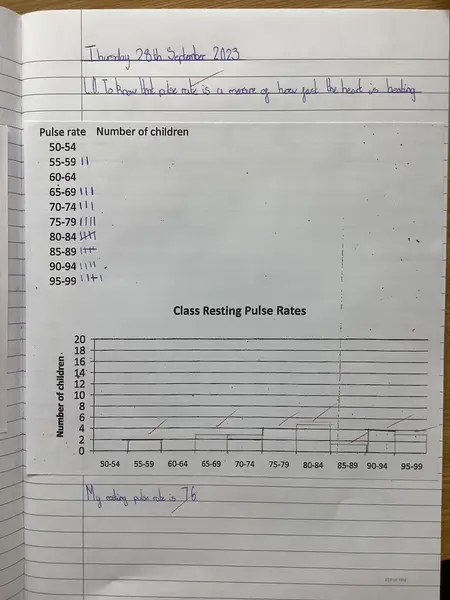 Thursday 28th September 2023
L.O. To know that pulse rate is a measure of how fast the heart is beating
Pulse rate Number of children
50-54
55-59 ||
60-64
65-69 |||
70-74 |||
75-79 ||||
80-84
85-89
90-94 ||||
95-99
Class Resting Pulse Rates
Number of children
20
18
16
14
12
10
8
6
4
2
0
50-54 55-59 60-64 65-69 70-74 75-79 80-84 85-89 90-94 95-99
My resting pulse rate is 76